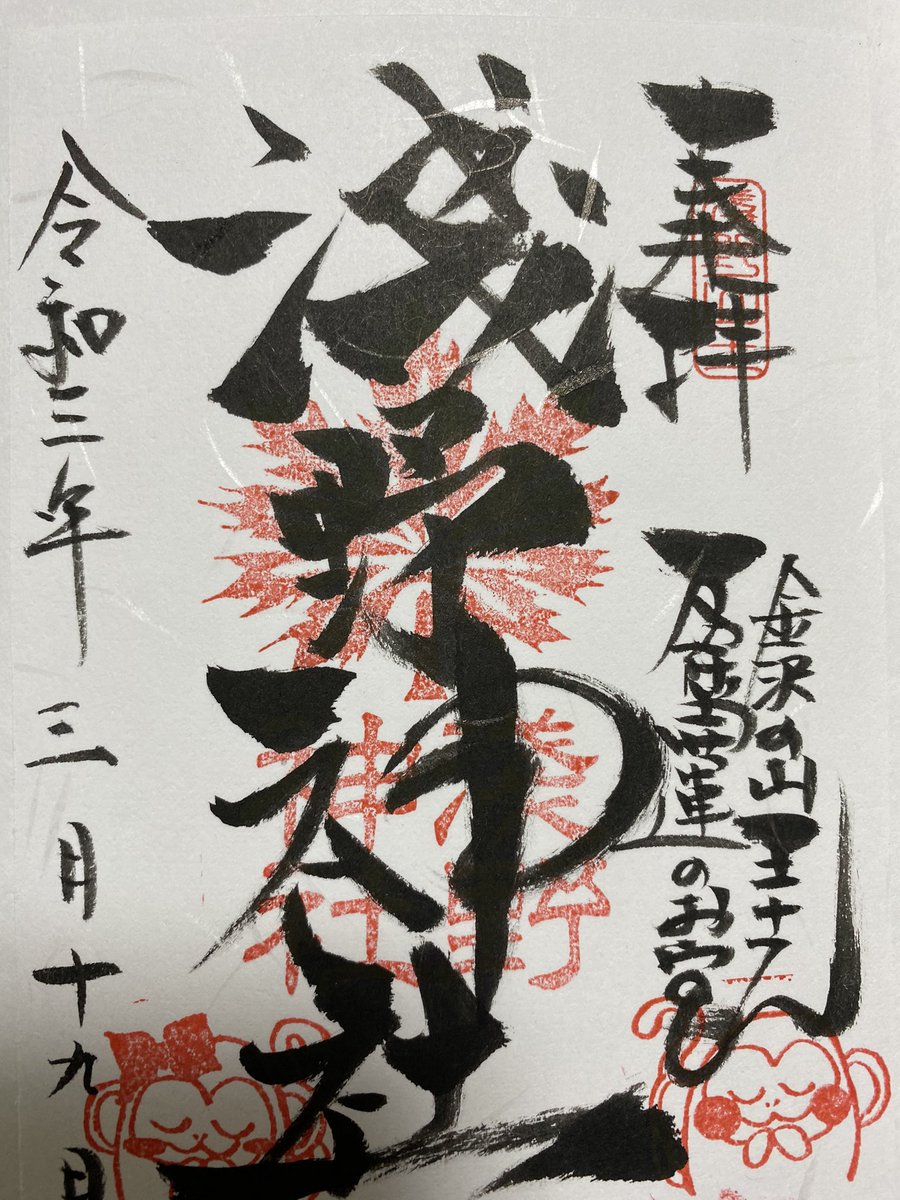 奉拝
金沢の山王さん
運のお宮
浅野神社
淺野
神社
令和三年 三月十九日